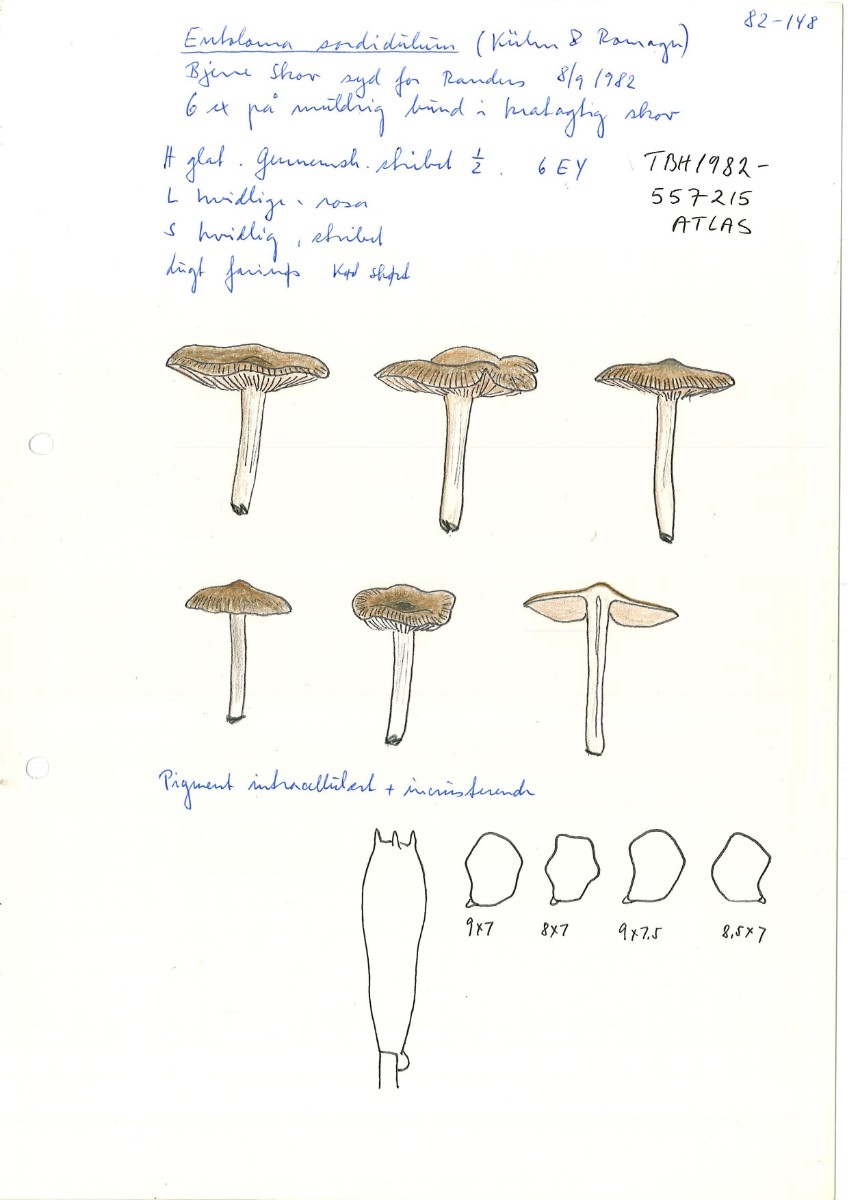 82-148
Entoloma sordidulum (Kühn & Romagn)
Bjerre Skov syd for Randers 8/9 1982
6 ex på muldrig bund i kratagtig skov
H glat. Gennemsk. stribet ½. 6 E Y
L hvidlige - rosa
S hvidlig, stribet
Lugt Kød skørt
TBH1982-
557215
ATLAS
Pigment intracellulært + incrusterende
9x7
8x7
9x7.5
8,5x7